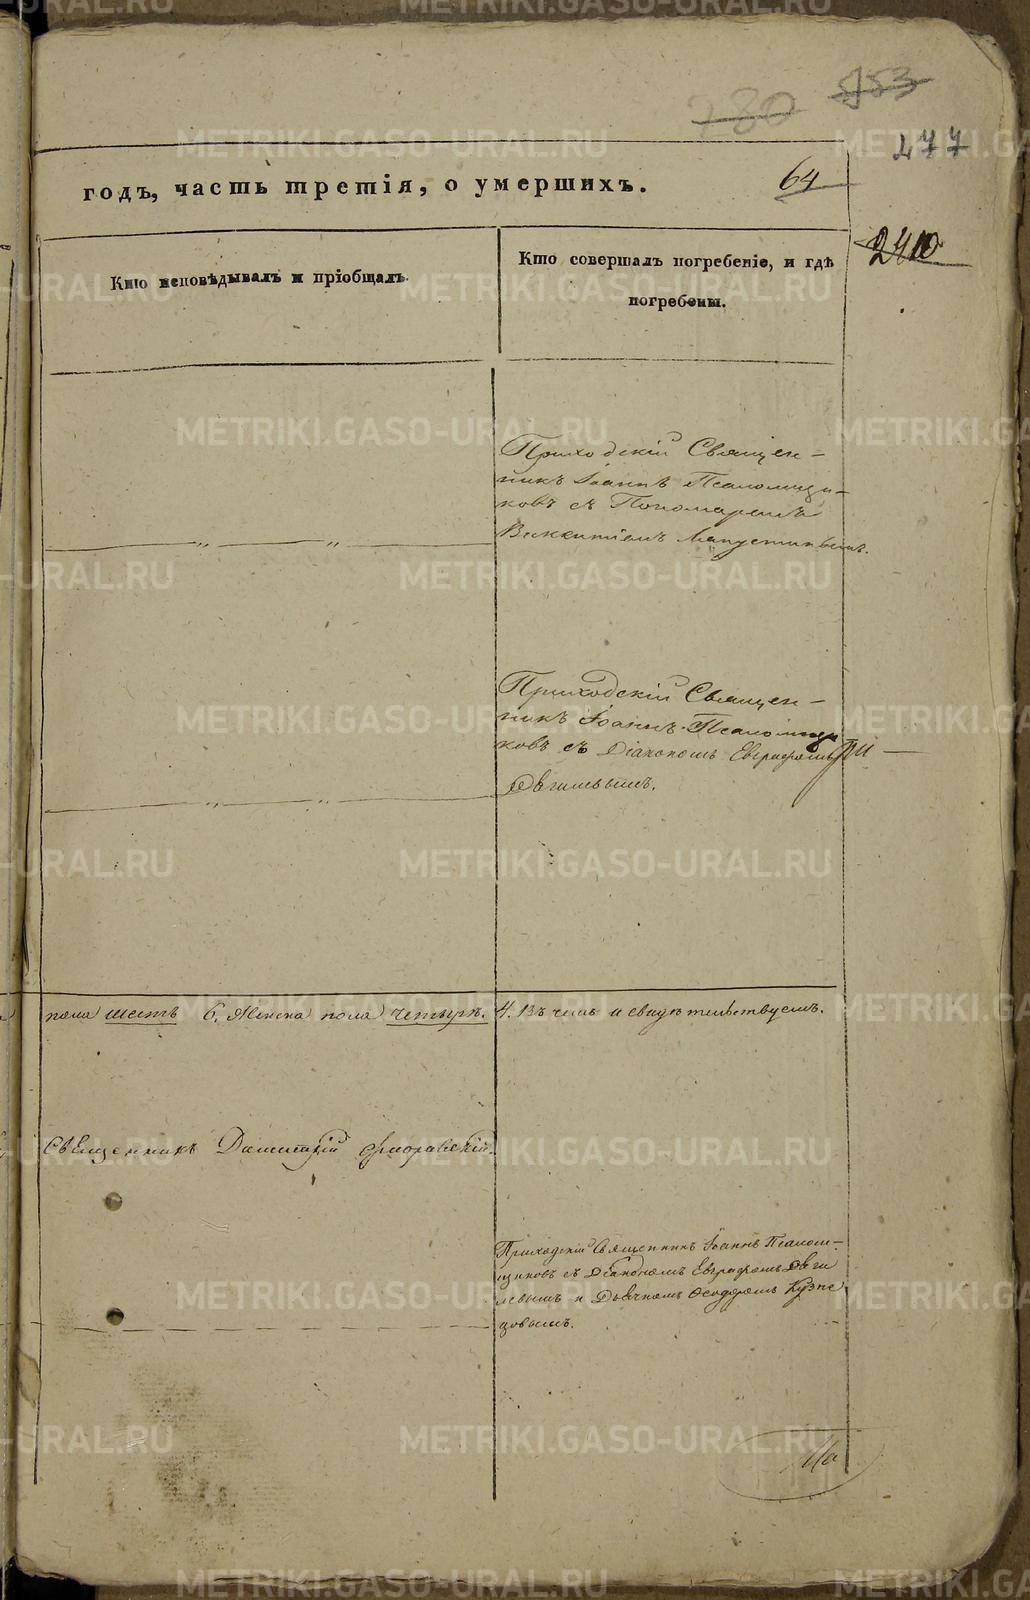 280
953
277
годъ, часть третія, о умершихъ.
64
2410
Кто исповѣдывалъ и пріобщалъ.
Кто совершалъ погребеніе, и гдѣ
погребены.
Приходскій Священ-
никъ Іоаннъ Псаломщи-
ковъ съ Пономаремъ
Викентіемъ Лапустинымъ.
Приходскій Священ-
никъ Іоаннъ Псаломщи-
ковъ съ Діакономъ Евграфомъ
Двгилевымъ.
пола шесть 6. Женска пола четыре. 4. Въ чемъ и свидѣтельствуемъ.
Священникъ Димитрій Флоровскій.
Приходскій Священникъ Іоаннъ Псалом-
щиковъ съ Діакономъ Евграфомъ Двги
левымъ и Дьячкомъ Ѳеодоромъ Кузне
цовымъ.
METRIKI.GASO-URAL.RU